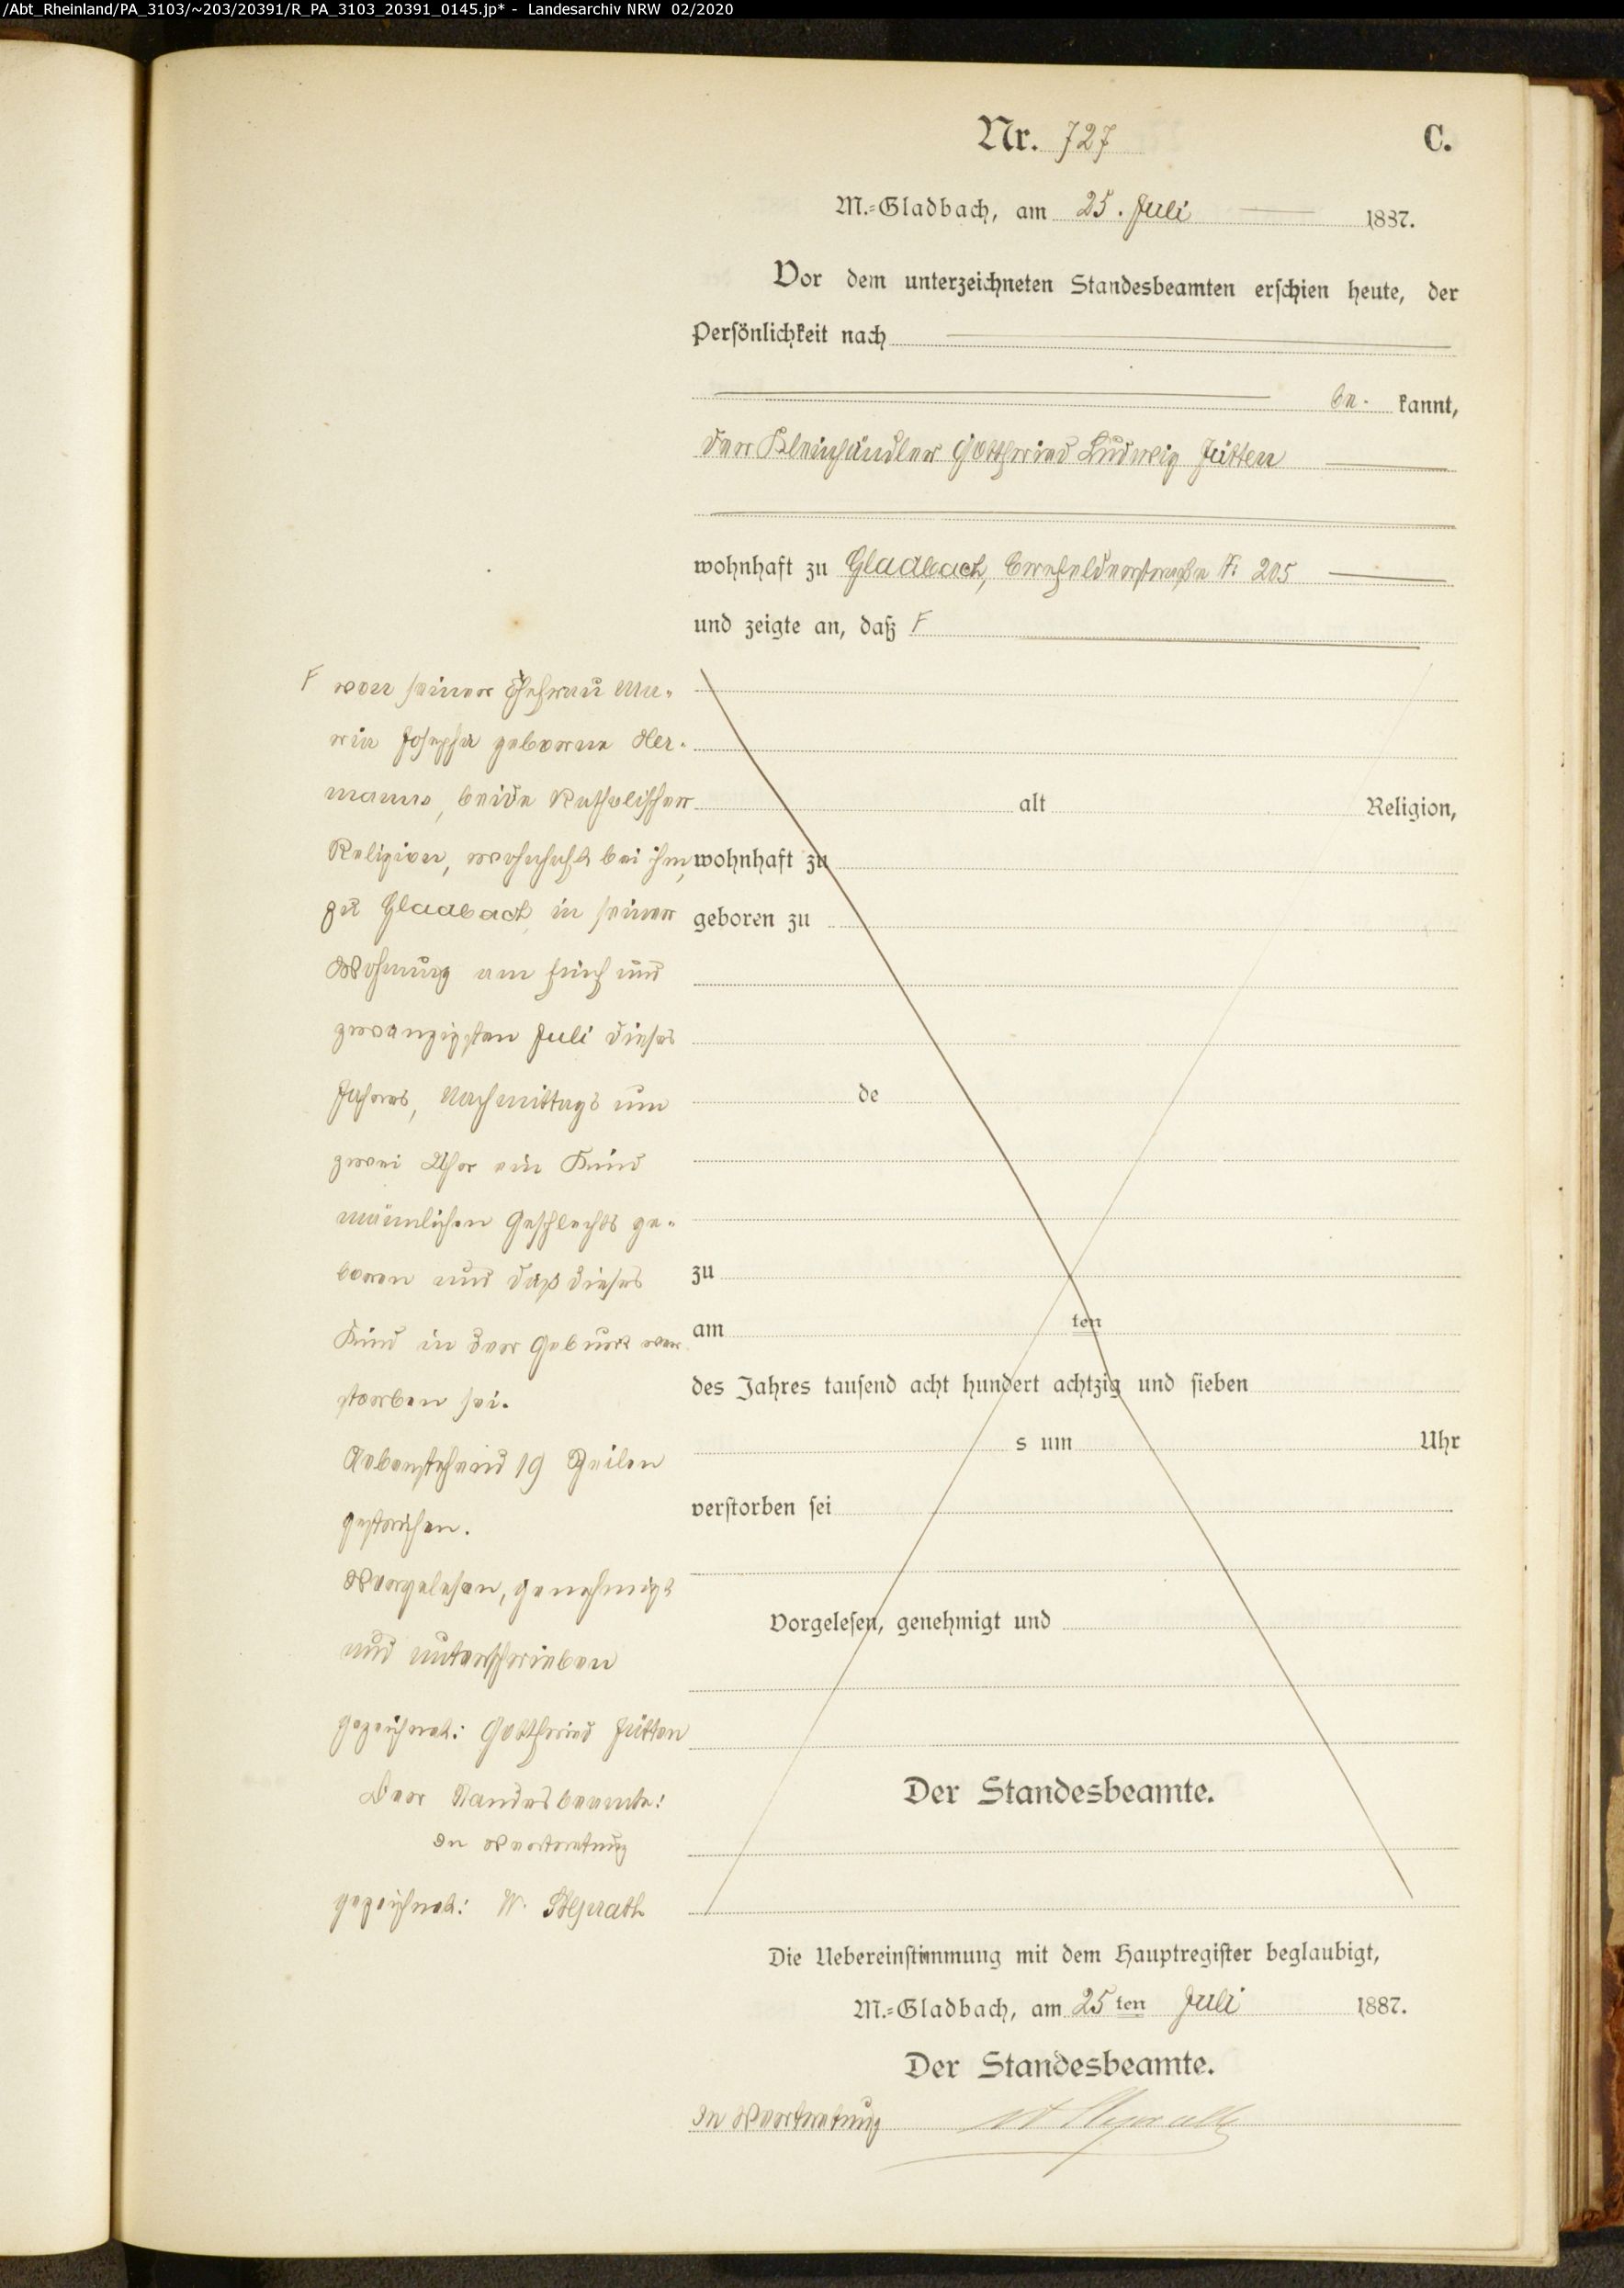 /Abt_Rheinland/PA_3103/~203/20391/R_PA_3103_20391_0145.jp* - Landesarchiv NRW 02/2020
Nr. 727
C.
M.-Gladbach, am 25. Juli 1887.
Vor dem unterzeichneten Standesbeamten erschien heute, der
Persönlichkeit nach
be- kannt,
der Kleinhändler Gottfried Ludwig Jütten
wohnhaft zu Gladbach, Crefelderstraße N: 205
und zeigte an, daß F
F von seiner Ehefrau Ma-
ria Josepha geborne Her-
manns, beide katholischer
Religion, wohnhaft bei ihm,
zu Gladbach in seiner
Wohnung am fünf und
zwanzigsten Juli dieses
Jahres, Nachmittags um
zwei Uhr ein Kind
männlichen Geschlechts ge-
boren und daß dieses
Kind in der Geburt ver
storben sei.
Nebenstehend 19 Zeilen
gestrichen.
Vorgelesen, genehmigt
und unterschrieben
gezeichnet: Gottfried Jütten
Der Standesbeamte:
In Vertretung
gezeichnet: W. Steprath
alt Religion,
wohnhaft zu
geboren zu
de
zu
am ten
des Jahres tausend acht hundert achtzig und sieben
s um Uhr
verstorben sei
Vorgelesen, genehmigt und
Der Standesbeamte.
Die Uebereinstimmung mit dem Hauptregister beglaubigt,
M.-Gladbach, am 25 ten Juli 1887.
Der Standesbeamte.
In Vertretung W Steprath